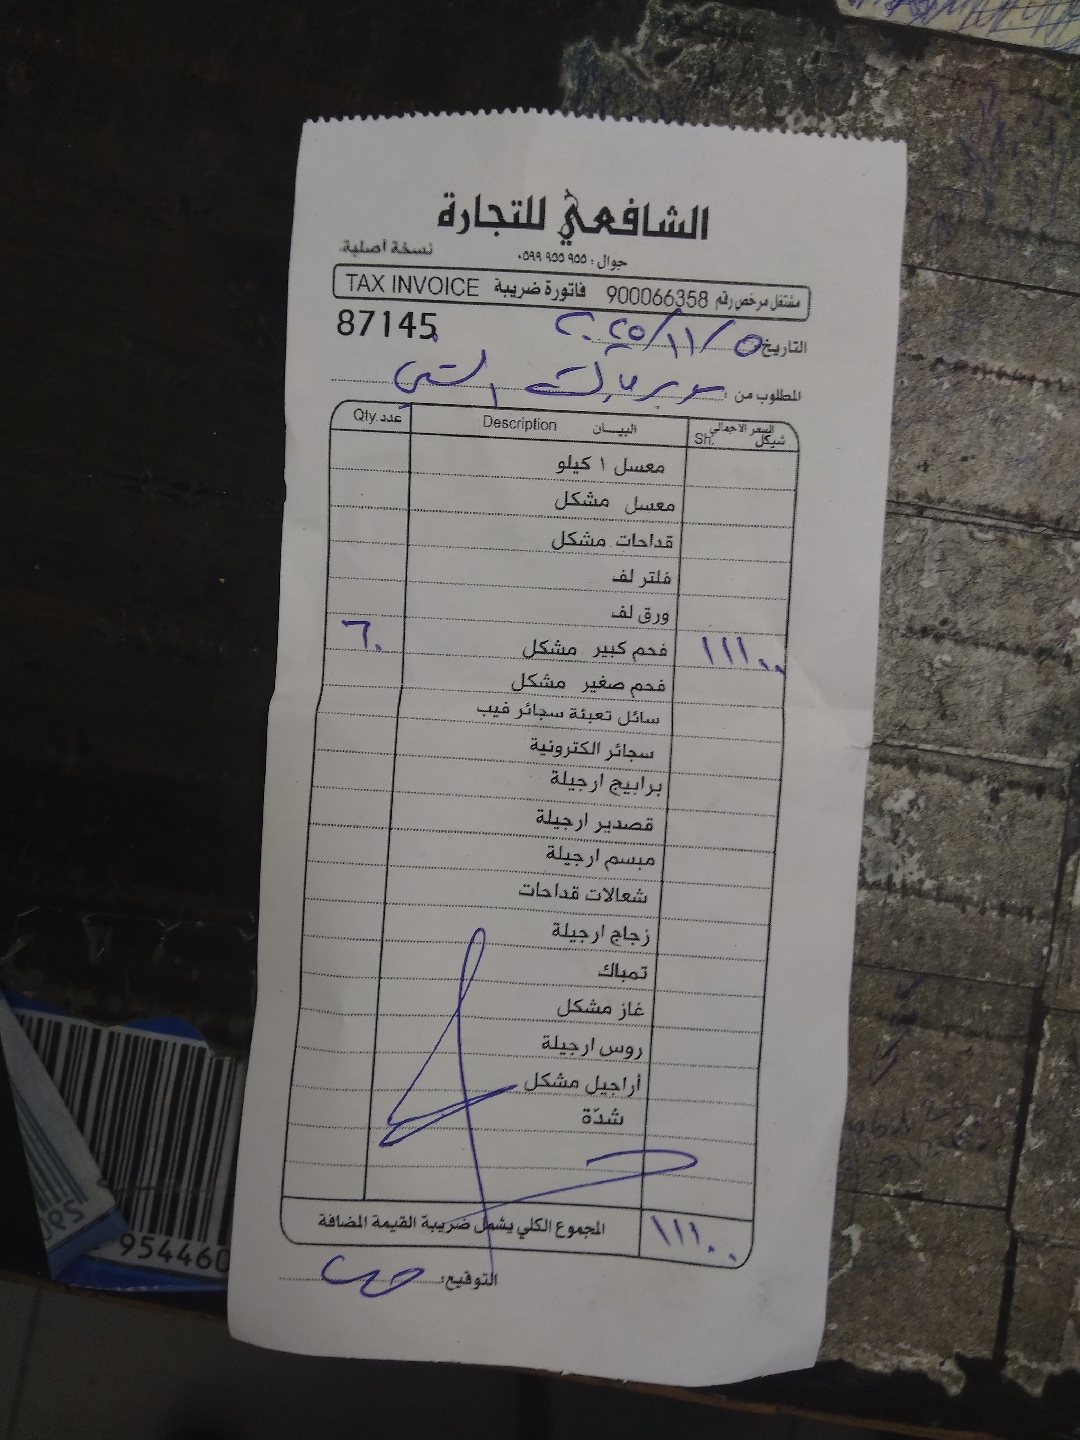 الشافعي للتجارة
جوال : ٠٥٩٩ ٩٥٥ ٩٥٥
نسخة أصلية
مشتغل مرخص رقم 900066358 فاتورة ضريبة TAX INVOICE
87145
التاريخ ٢٠٢٥/١١/٥
المطلوب من : سوبر ماركت
السعر الاجمالي شيكل Sh. البيان Description عدد Qty.
معسل ١ كيلو
معسل مشكل
قداحات مشكل
فلتر لف
ورق لف
١١١٠٠ فحم كبير مشكل ٦٠
فحم صغير مشكل
سائل تعبئة سجائر فيب
سجائر الكترونية
برابيج ارجيلة
قصدير ارجيلة
مبسم ارجيلة
شعالات قداحات
زجاج ارجيلة
تمباك
غاز مشكل
روس ارجيلة
أراجيل مشكل
شدّة
١١١٠٠ المجموع الكلي يشمل ضريبة القيمة المضافة
التوقيع:
954460